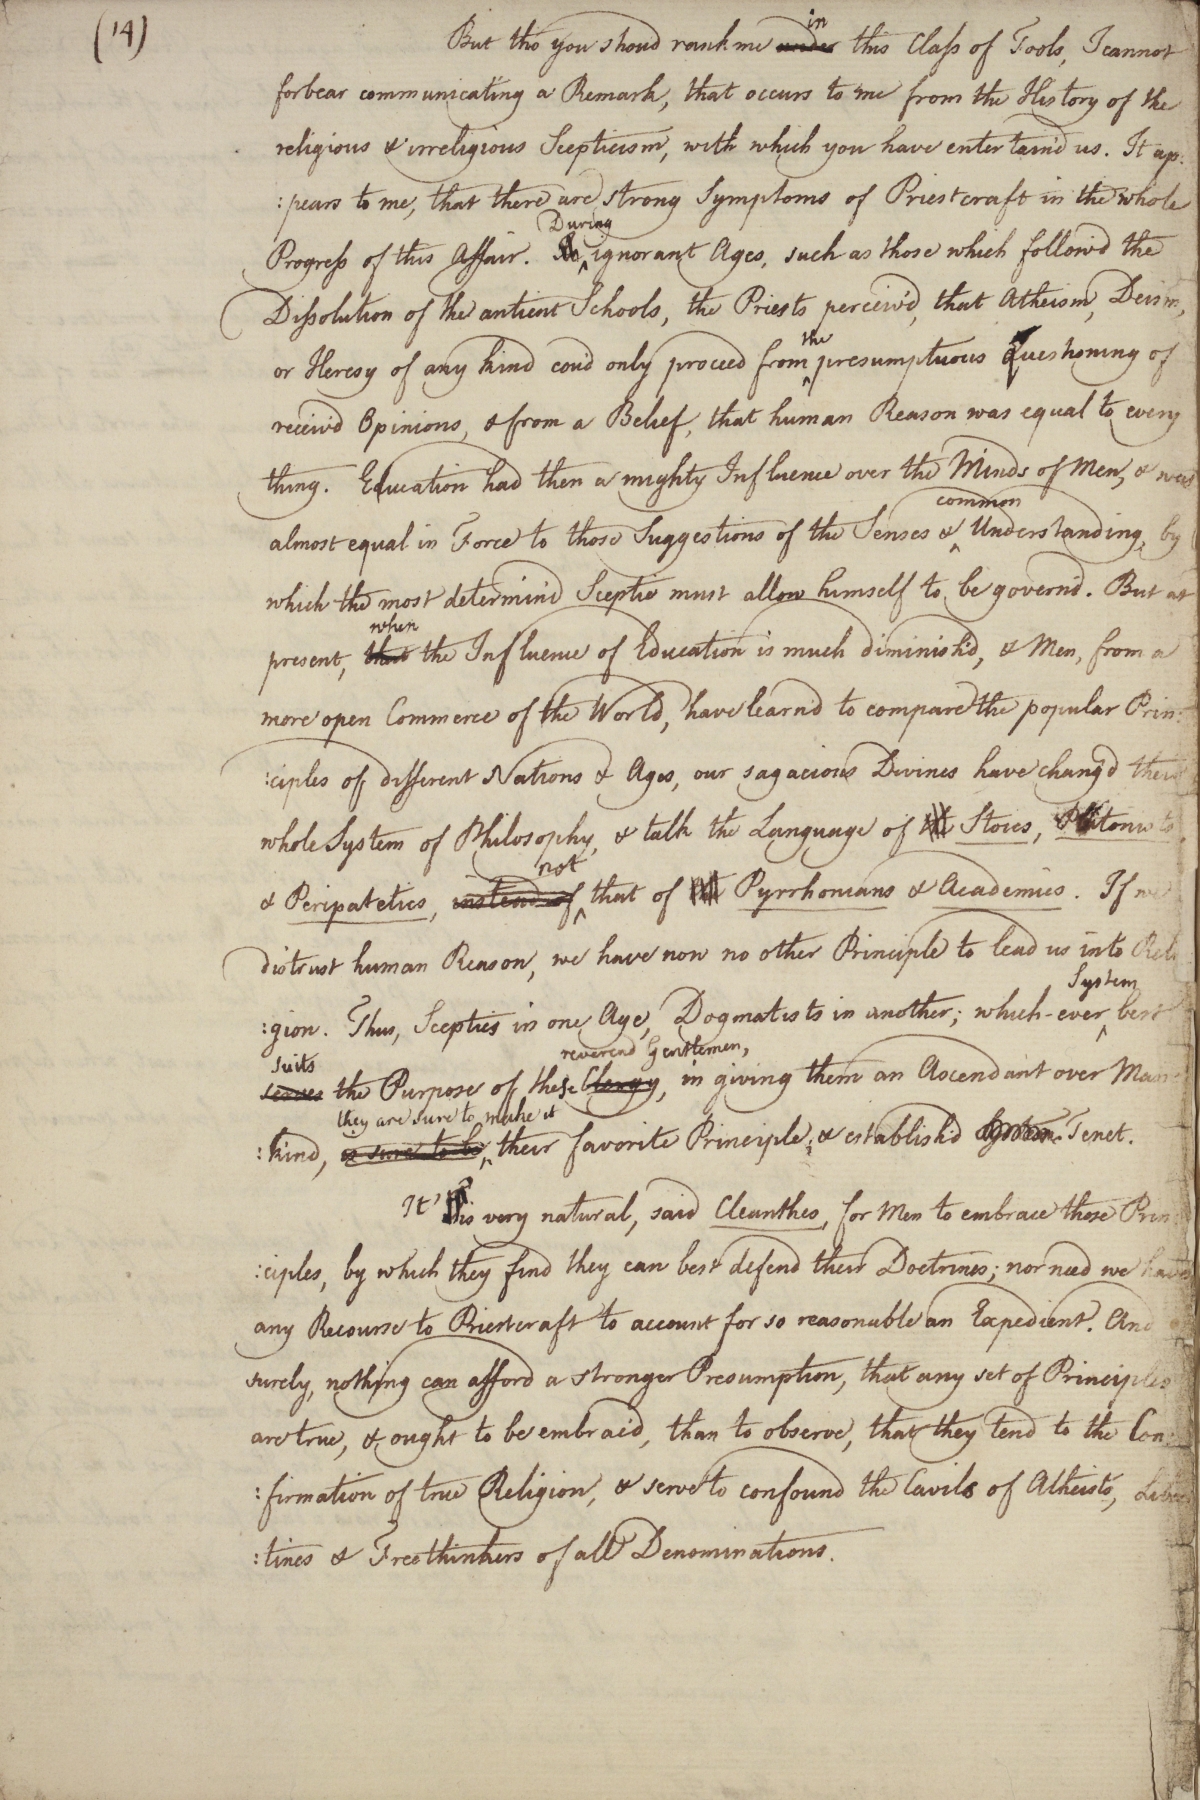 (14)
But tho' you shoud rank me under in this Class of Fools, I cannot
forbear communicating a Remark, that occurs to me from the History of the
religious & irreligious Scepticism, with which you have entertaind us. It ap:
:pears to me, that there are strong Symptoms of Priestcraft in the whole
Progress of this Affair. During ignorant Ages, such as those which follow'd the
Dissolution of the antient Schools, the Priests perceiv'd, that Atheism, Deism,
or Heresy of any kind coud only proceed from the presumptuous Questioning of
receiv'd Opinions, & from a Belief, that human Reason was equal to every
thing. Education had then a mighty Influence over the Minds of Men, & was
almost equal in Force to those Suggestions of the Senses & common Understanding, by
which the most determin'd Sceptic must allow himself to be govern'd. But at
present, that when the Influence of Education is much diminish'd, & Men, from a
more open Commerce of the World, have learn'd to compare the popular Prin:
:ciples of different Nations & Ages, our sagacious Divines have chang'd their
whole System of Philosophy, & talk the Language of Stoics, Platonists
& Peripatetics, instead of not that of Pyrrhonians & Academics. If we
distrust human Reason, we have now no other Principle to lead us into Reli
:gion. Thus, Sceptics in one Age, Dogmatists in another; which-ever System best
serves suits the Purpose of these Clergy reverend Gentlemen, in giving them an Ascendant over Man:
:kind, is sure to be they are sure to make it their favorite Principle, & establish'd Tenet.
It is very natural, said Cleanthes, for Men to embrace those Prin:
:ciples, by which they find they can best defend their Doctrines; nor need we have
any Recourse to Priestcraft to account for so reasonable an Expedient. And
surely, nothing can afford a stronger Presumption, that any set of Principles
are true, & ought to be embrac'd, than to observe, that they tend to the Con:
:firmation of true Religion, & serve to confound the Cavils of Atheists, Liber
:tines & Freethinkers of all Denominations.